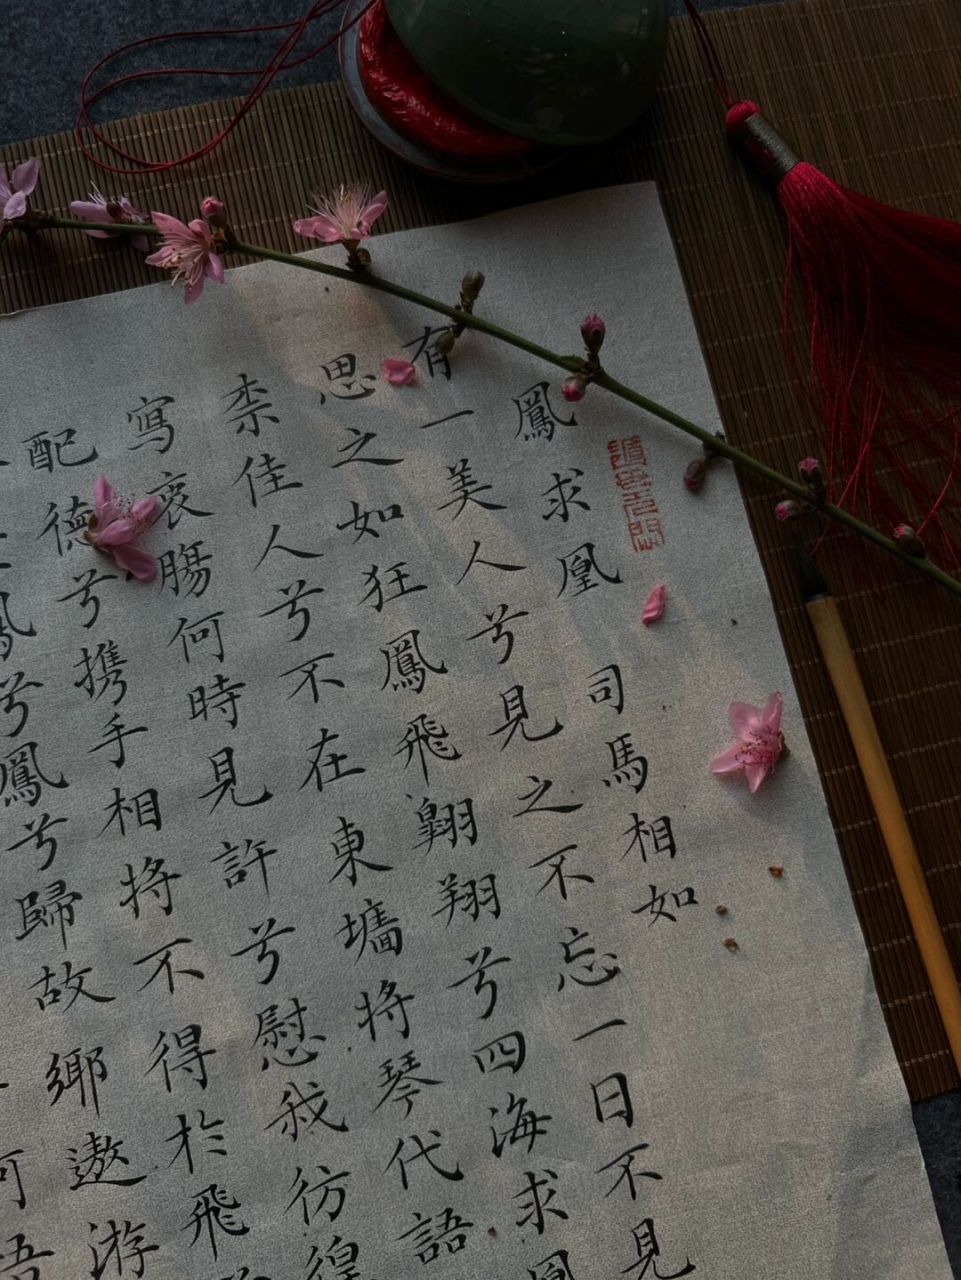 鳳求凰 司馬相如
有一美人兮見之不忘一日不見
思之如狂鳳飛翺翔兮四海求
柰佳人兮不在東墻将琴代語
寫哀膓何時見許兮慰我彷徨
配德兮携手相将不得於飛
鳳兮鳳兮歸故鄉遨游